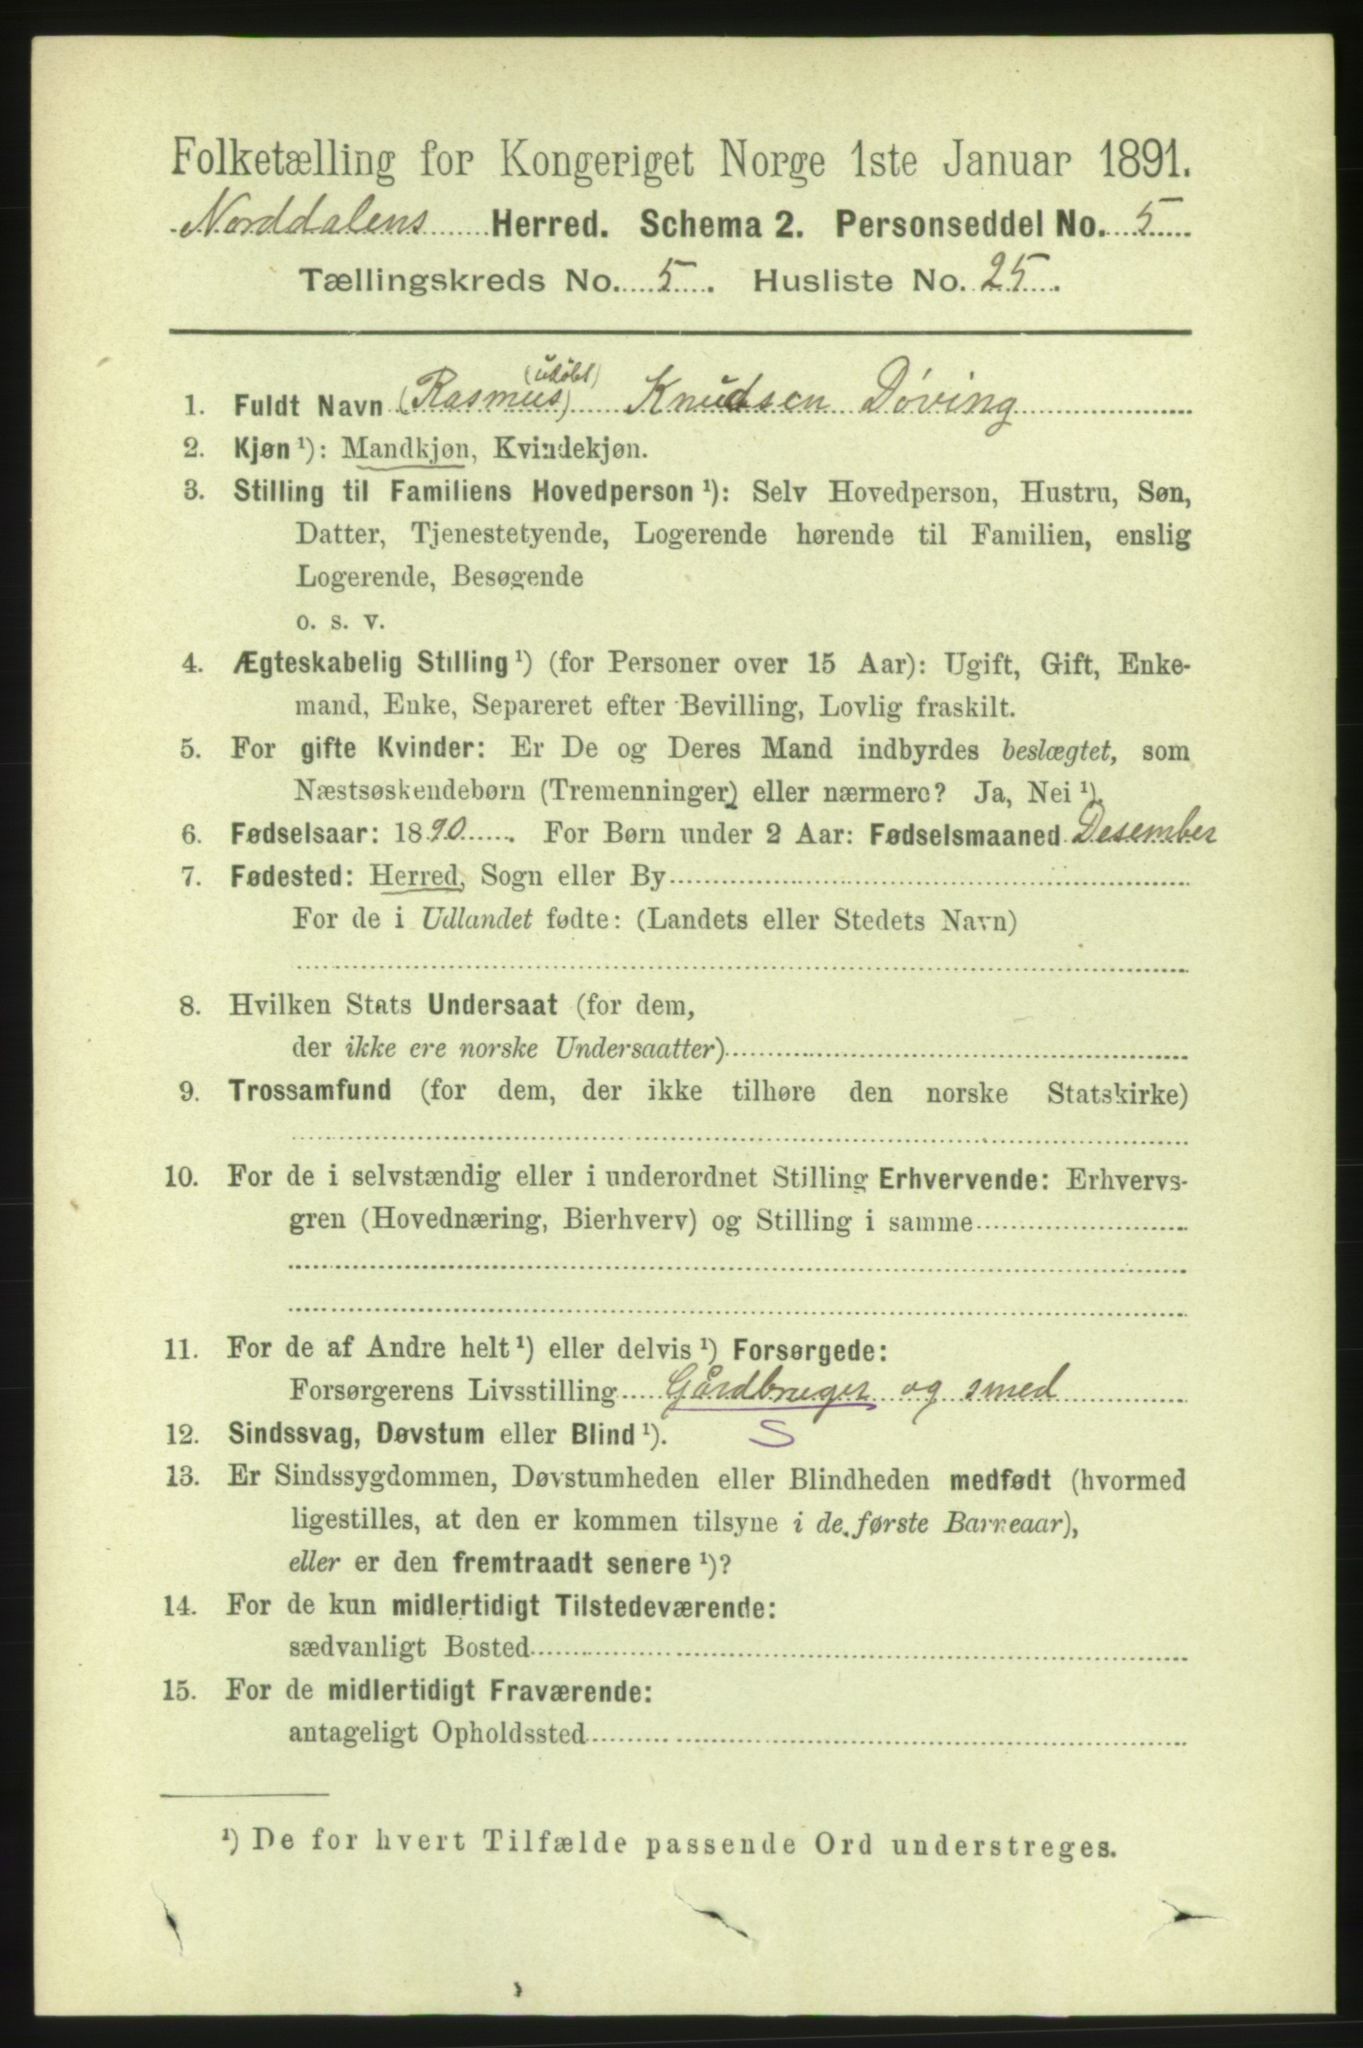 Folketælling for Kongeriget Norge 1ste Januar 1891.
Norddalens Herred. Schema 2. Personseddel No. 5
Tællingskreds No. 5. Husliste No. 25.
(udøbt)
1. Fuldt Navn (Rasmus) Knudsen Døving
2. Kjøn ¹): Mandkjøn, Kvindekjøn.
3. Stilling til Familiens Hovedperson ¹): Selv Hovedperson, Hustru, Søn,
Datter, Tjenestetyende, Logerende hørende til Familien, enslig
Logerende, Besøgende
o. s. v.
4. Ægteskabelig Stilling ¹) (for Personer over 15 Aar): Ugift, Gift, Enke-
mand, Enke, Separeret efter Bevilling, Lovlig fraskilt.
5. For gifte Kvinder: Er De og Deres Mand indbyrdes beslægtet, som
Næstsøskendebørn (Tremenninger) eller nærmere? Ja, Nei ¹).
6. Fødselsaar: 1890. For Børn under 2 Aar: Fødselsmaaned Desember
7. Fødested: Herred, Sogn eller By
For de i Udlandet fødte: (Landets eller Stedets Navn)
8. Hvilken Stats Undersaat (for dem,
der ikke ere norske Undersaatter)
9. Trossamfund (for dem, der ikke tilhøre den norske Statskirke)
10. For de i selvstændig eller i underordnet Stilling Erhvervende: Erhvervs-
gren (Hovednæring, Bierhverv) og Stilling i samme
11. For de af Andre helt ¹) eller delvis ¹) Forsørgede:
Forsørgerens Livsstilling Gårdbruger og smed
12. Sindssvag, Døvstum eller Blind ¹). S
13. Er Sindssygdommen, Døvstumheden eller Blindheden medfødt (hvormed
ligestilles, at den er kommen tilsyne i de første Barneaar),
eller er den fremtraadt senere ¹)?
14. For de kun midlertidigt Tilstedeværende:
sædvanligt Bosted
15. For de midlertidigt Fraværende:
antageligt Opholdssted
¹) De for hvert Tilfælde passende Ord understreges.